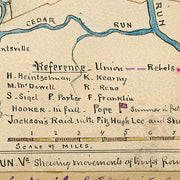 CEDAR RUN
RUN
Reference Union Rebels
H. Heintzelman K. Kearny
M. McDowell R. Reno
S. Sigel P. Porter F. Franklin
HOOKER in full Pope
Jackson's Raid with Fitz Hugh Lee and
1 2 3 4 5 6 7
SCALE OF MILES.
RUN, Va Showing movements of troops from